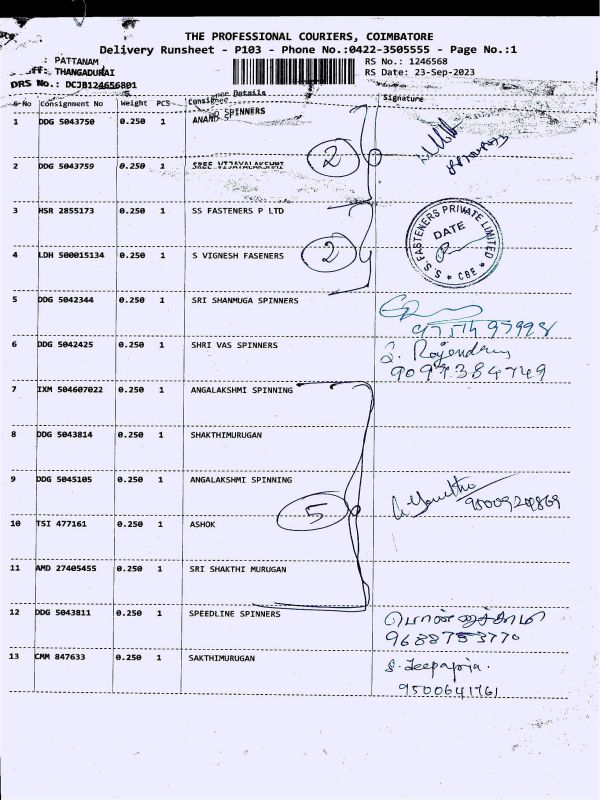 THE PROFESSIONAL COURIERS, COIMBATORE
Delivery Runsheet - P103 - Phone No.:0422-3505555 - Page No.:1
: PATTANAM
RS No.: 1246568
ff: THANGADURAI
RS Date: 23-Sep-2023
DRS No.: DCJB124656801
S No Consignment No Weight PCS Consignee Details Signature
1 DDG 5043750 0.250 1 ANAND SPINNERS
2 DDG 5043759 0.250 1 SREE VIJAYALAKSHMI
2
3 HSR 2855173 0.250 1 SS FASTENERS P LTD
S S FASTENERS PRIVATE LIMITED * CBE *
DATE
4 LDH 500015134 0.250 1 S VIGNESH FASENERS
2
5 DDG 5042344 0.250 1 SRI SHANMUGA SPINNERS
6 DDG 5042425 0.250 1 SHRI VAS SPINNERS
7 IXM 504607022 0.250 1 ANGALAKSHMI SPINNING
8 DDG 5043814 0.250 1 SHAKTHIMURUGAN
9 DDG 5045105 0.250 1 ANGALAKSHMI SPINNING
5
10 TSI 477161 0.250 1 ASHOK
11 AMD 27405455 0.250 1 SRI SHAKTHI MURUGAN
12 DDG 5043811 0.250 1 SPEEDLINE SPINNERS
9688753770
13 CMM 847633 0.250 1 SAKTHIMURUGAN
9500641761